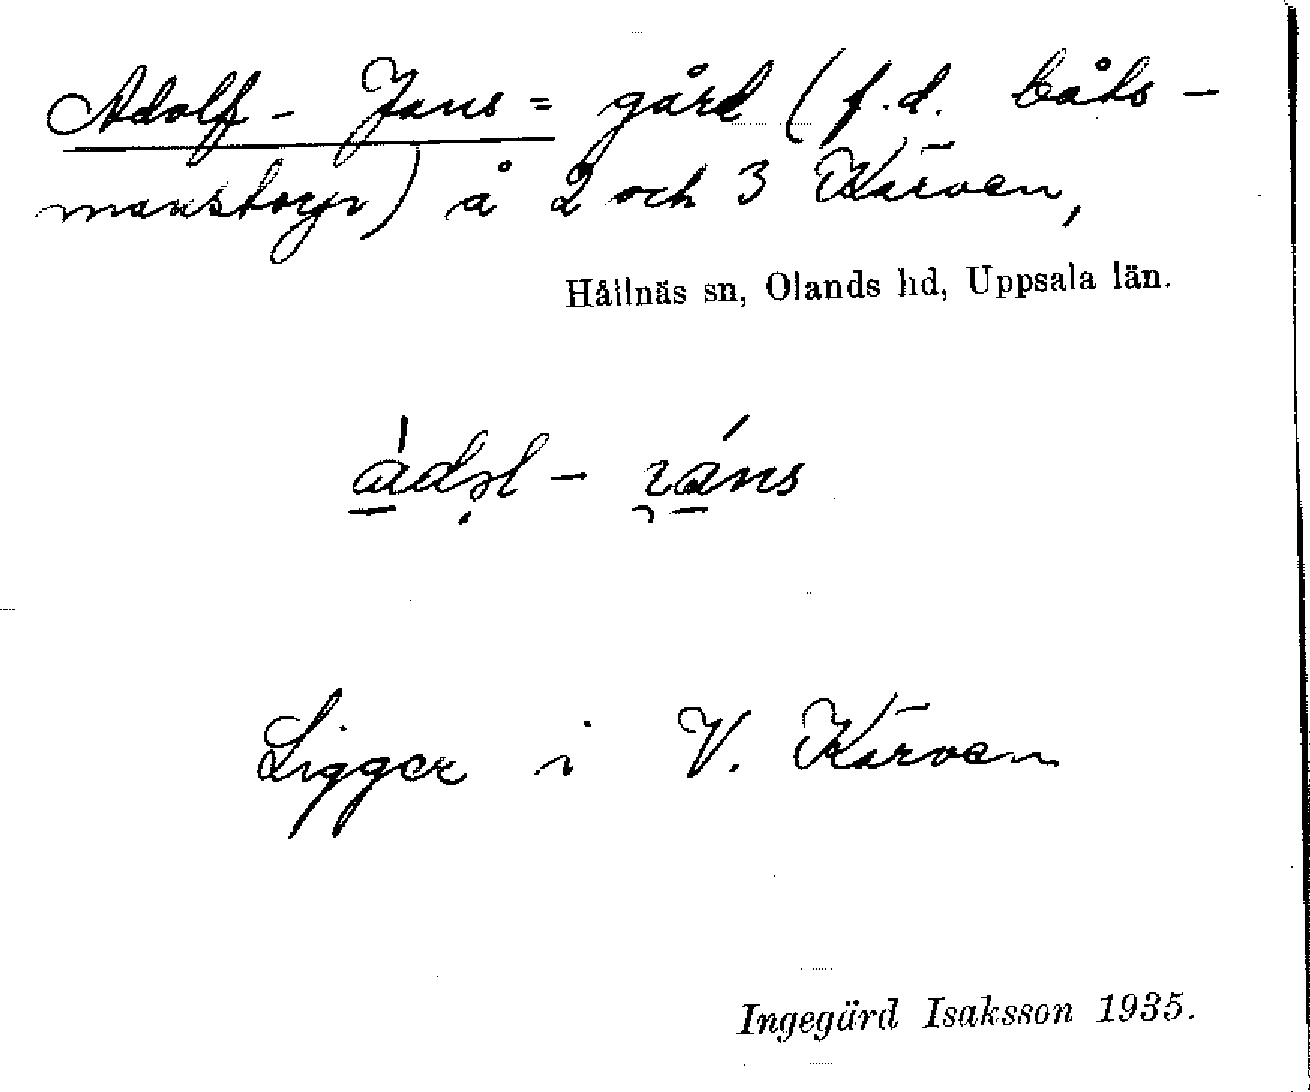 Adolf-Jans= gård (f.d. båts-
manstorp) å 2 och 3 Kärven,
Hållnäs sn, Olands hd, Uppsala län.
Ligger i V. Kärven
Ingegärd Isaksson 1935.